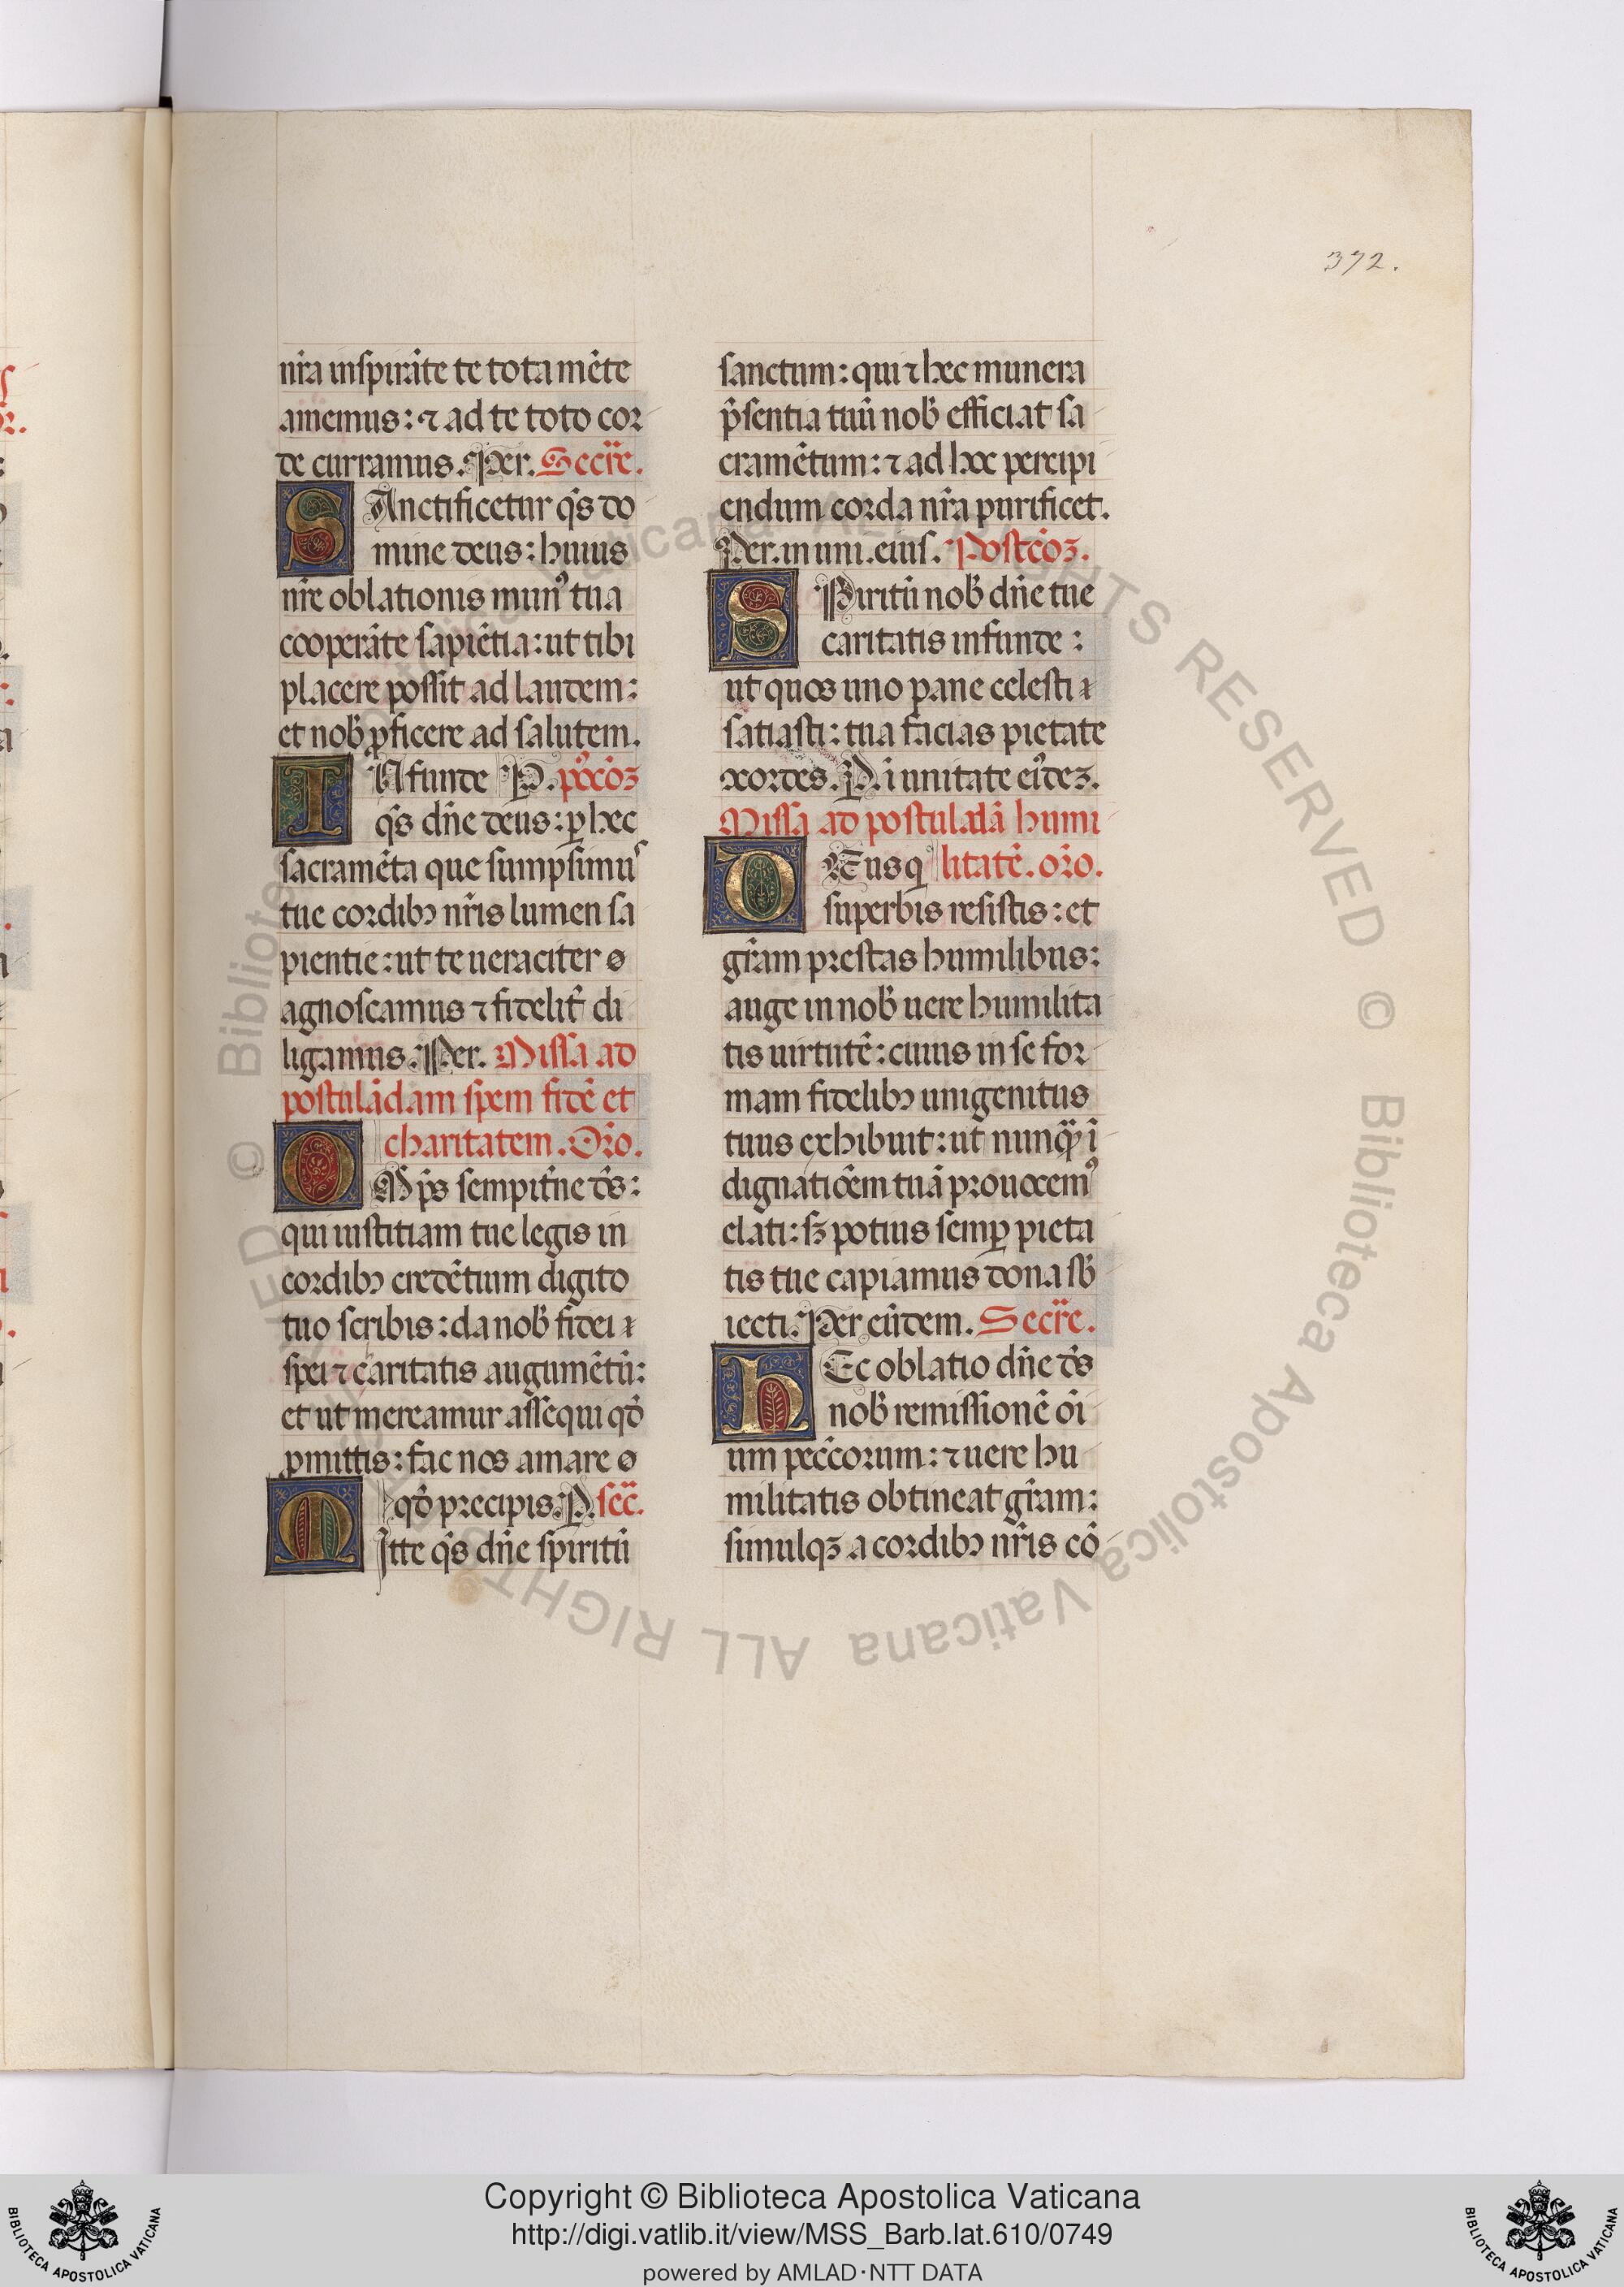 372.
nr̄a inspirāte te tota mēte
amemus: ⁊ ad te toto cor
de curramus. Per. Secr̄e.
SAnctificetur qs̄ do
mine deus: huius
nr̄e oblationis munꝰ tua
cooperāte sapiētia: ut tibi
placere possit ad laudem:
et nob̄ ꝓficere ad salutem.
INfunde P. pꝰcōꝫ
qs̄ dn̄e deus: ꝑ hec
sacramēta que sumpsimus
tue cordibꝫ nr̄is lumen sa
pientie: ut te ueraciter
agnoscamus ⁊ fidelit̄ di
ligamus. Per. Missa ad
postulādam spem fidē et
charitatem. Or̄o.
OMp̄s sempitn̄e ds̄:
qui iustitiam tue legis in
cordibꝫ credētium digito
tuo scribis: da nob̄ fidei
spei ⁊ caritatis augumētū:
et ut mereamur assequi qd̄
ꝓmittis: fac nos amare
qd̄ precipis. P. sec̄.
MItte qs̄ dn̄e spiritū
sanctum: qui ⁊ hec munera
p̄sentia tuū nob̄ efficiat sa
cramētum: ⁊ ad hoc percipi
endum corda nr̄a purificet.
Per. in uni. eius. Postcōꝫ.
SPiritū nob̄ dn̄e tue
caritatis infunde:
ut quos uno pane celesti
satiasti: tua facias pietate
cocordes. P. ī unitate eīdeꝫ.
Missa ad postuladā humi
DEus q litatē. or̄o.
superbis resistis: et
gr̄am prestas humilibus:
auge in nob̄ uere humilita
tis uirtutē: cuius in se for
mam fidelibꝫ unigenitus
tuus exhibuit: ut nunqꝫ ī
dignatiōem tuā prouocemꝰ
elati: sꝫ potius semꝑ pieta
tis tue capiamus dona sb̄
iecti. Per eūdem. Secr̄e.
HEc oblatio dn̄e ds̄
nob̄ remissionē oī
um pecc̄orum: ⁊ uere hu
militatis obtineat gr̄am:
simulqꝫ a cordibꝫ nr̄is cō
© Biblioteca Apostolica Vaticana ALL RIGHTS RESERVED © Biblioteca Apostolica Vaticana ALL RIGHTS RESERVED
Copyright © Biblioteca Apostolica Vaticana
http://digi.vatlib.it/view/MSS_Barb.lat.610/0749
powered by AMLAD·NTT DATA
BIBLIOTECA APOSTOLICA VATICANA
BIBLIOTECA APOSTOLICA VATICANA